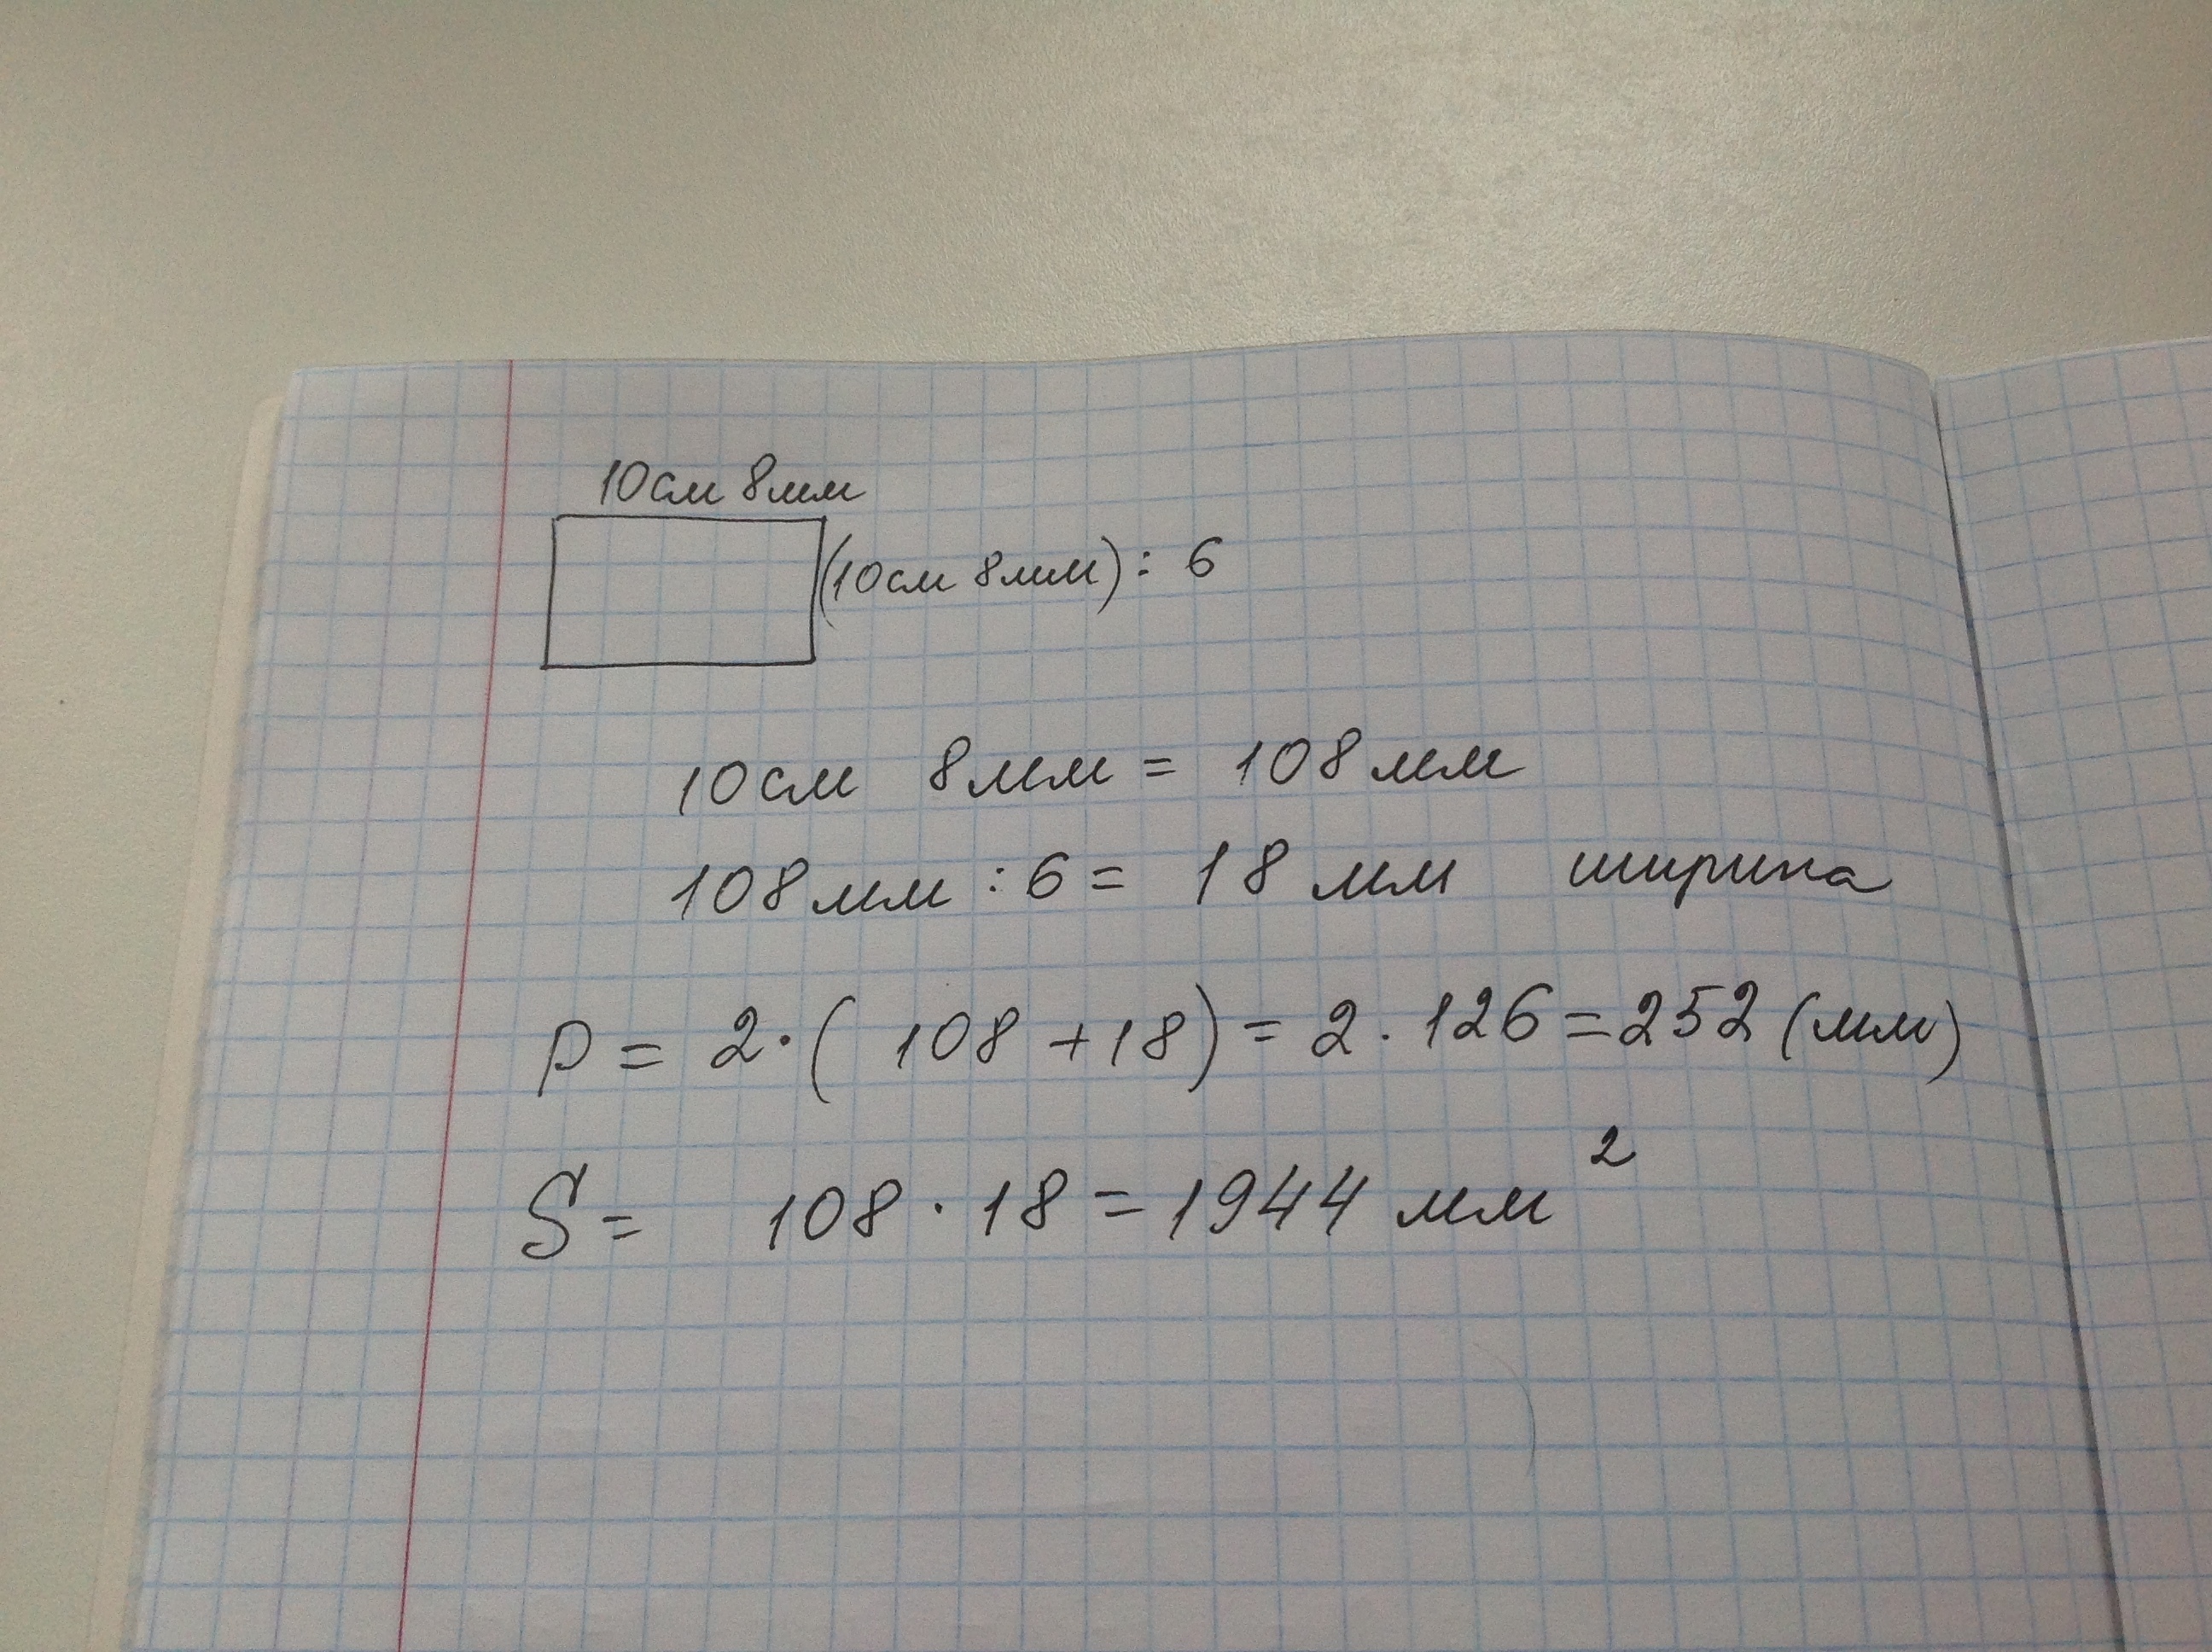 10см 8мм
(10см 8мм) : 6
10см 8мм = 108мм
108мм : 6 = 18 мм ширина
P = 2·( 108 + 18) = 2 · 126 = 252 (мм)
S = 108 · 18 = 1944 мм²